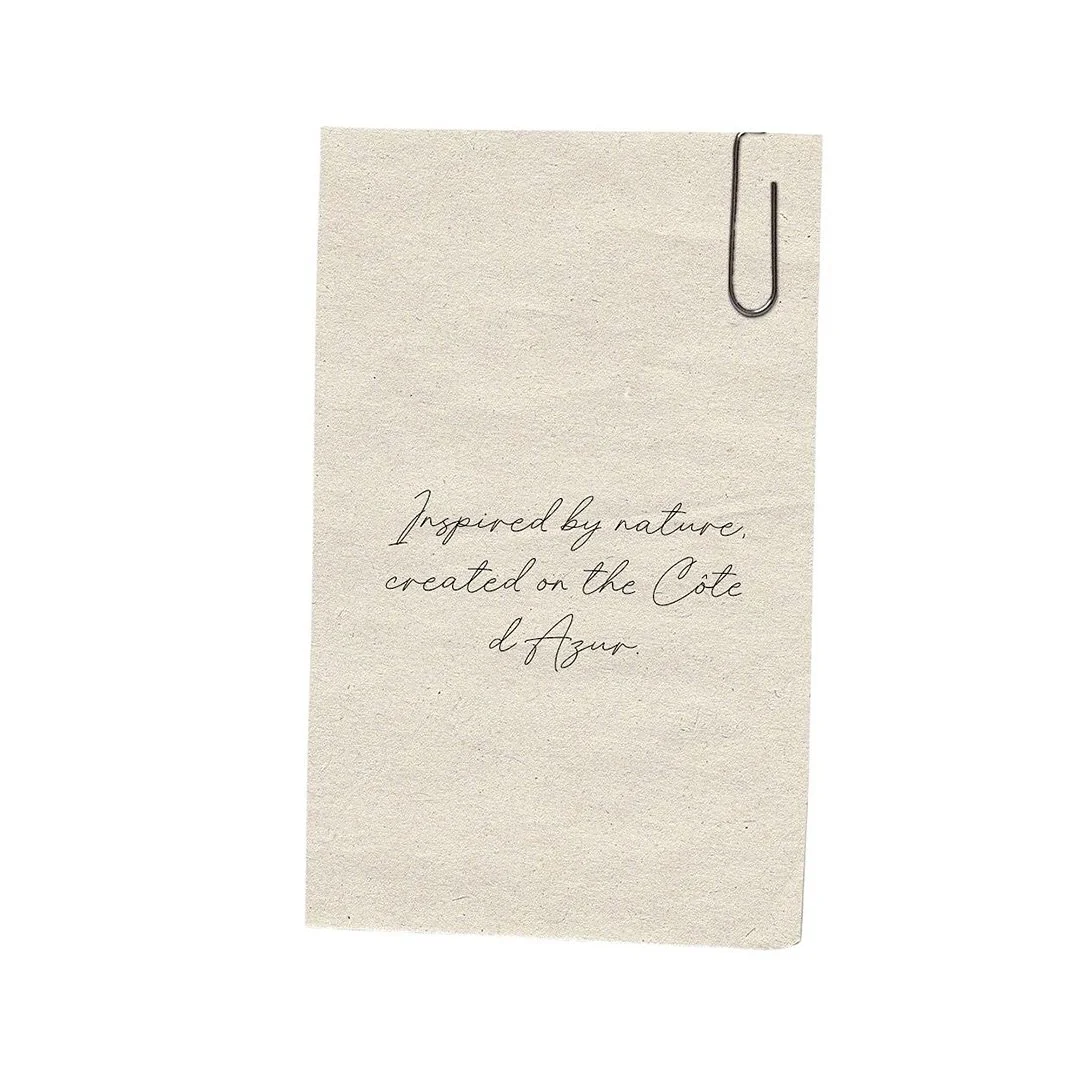 Inspired by nature,
created on the Côte
d Azur.